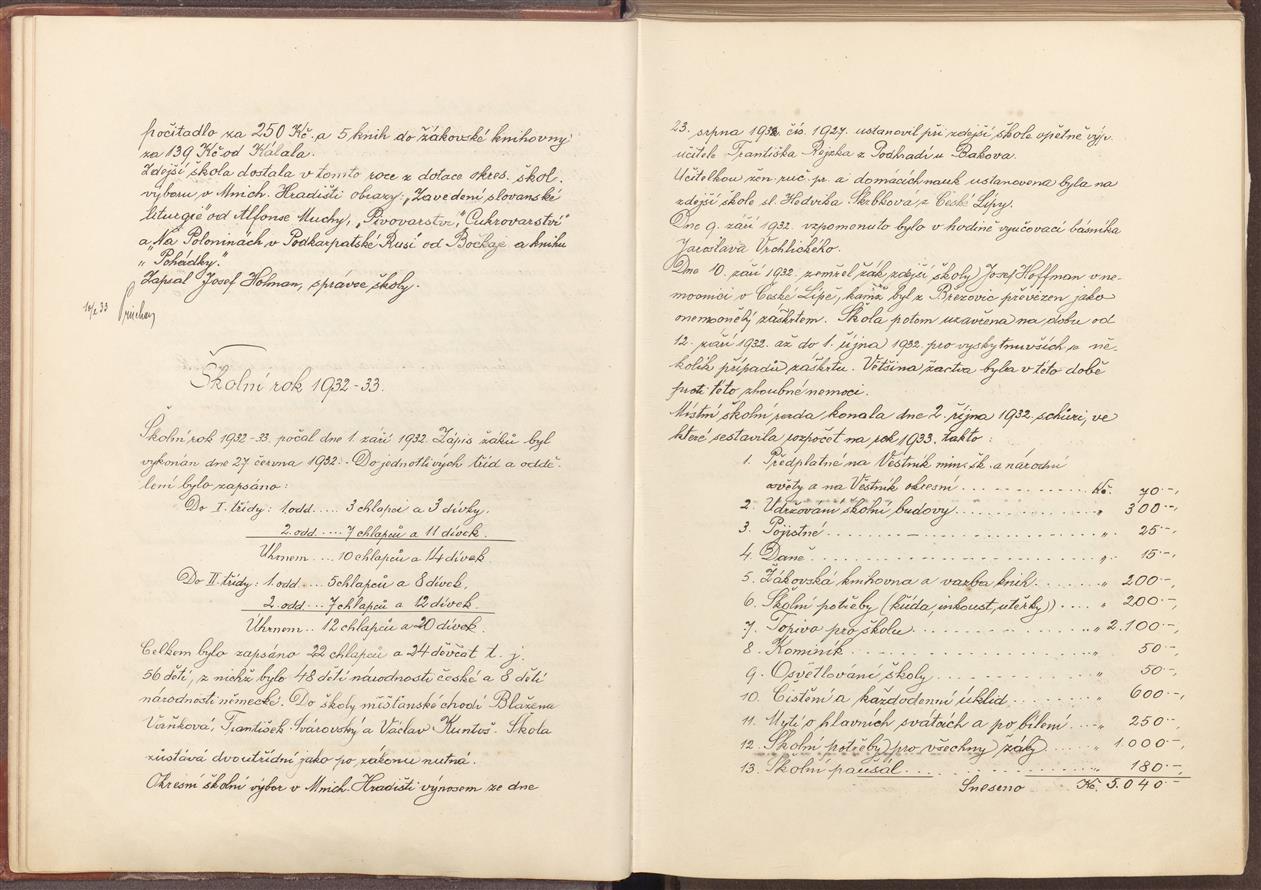 počítadlo za 250 Kč. a 5 knih do žákovské knihovny
za 139 Kč od Kálala.
Zdejší škola dostala v tomto roce z dotace okres. škol.
výboru v Mnich. Hradišti obrazy: „Zavedení slovanské
liturgie" od Alfonse Muchy, „Pivovarství", „Cukrovarství"
a „Na Poloninách v Podkarpatské Rusi" od Bočkaje a knihu
„Pohádky".
Zapsal Josef Holman, správce školy.
Školní rok 1932-33.
Školní rok 1932-33. počal dne 1. září 1932. Zápis žáků byl
vykonán dne 27. června 1932. Do jednotlivých tříd a oddě-
lení bylo zapsáno:
Do I. třídy: 1. odd. .... 3 chlapci a 3 dívky.
2. odd. .... 7 chlapců a 11 dívek.
Úhrnem .... 10 chlapců a 14 dívek.
Do II. třídy: 1. odd. .... 5 chlapců a 8 dívek.
2. odd. ... 7 chlapců a 12 dívek.
Úhrnem .. 12 chlapců a 20 dívek.
Celkem bylo zapsáno 22 chlapců a 24 děvčat t. j.
56 dětí, z nichž bylo 48 dětí národnosti české a 8 dětí
národnosti německé. Do školy měšťanské chodí Blažena
Vaňková, František Svárovský a Václav Kuntoš. Škola
zůstává dvoutřídní jako po zákonu nutná.
Okresní školní výbor v Mnich. Hradišti výnosem ze dne
23. srpna 1932 čís. 1927. ustanovil při zdejší škole opětně výp.
učitele Františka Rejska z Podhradí u Bakova.
Učitelkou žen. ruč. pr. a domácích nauk ustanovena byla na
zdejší škole sl. Hedvika Škrbková z České Lípy.
Dne 9. září 1932. vzpomenuto bylo v hodině vyučovací básníka
Jaroslava Vrchlického.
Dne 10. září 1932. zemřel žák zdejší školy Josef Hoffman v ne-
mocnici v České Lípě, kamž byl z Březovic převezen jako
onemocnělý záškrtem. Škola potom uzavřena na dobu od
12. září 1932. až do 1. října 1932. pro vyskytnuvších se ně-
kolik případů záškrtu. Většina žactva byla v této době
proti této zhoubné nemoci.
Místní školní rada konala dne 2. října 1932. schůzi, ve
které sestavila rozpočet na rok 1933. takto:
1. Předplatné na Věstník min. šk. a národní
osvěty a na Věstník okresní ............ Kč. 70.-,
2. Udržování školní budovy ............ „ 300.-,
3. Pojistné ............ „ 25.-,
4. Daně ............ „ 15.-,
5. Žákovská knihovna a vazba knih ....... „ 200.-,
6. Školní potřeby (křída, inkoust, utěrky) .... „ 200.-,
7. Topivo pro školu ............ „ 2.100.-,
8. Kominík ............ „ 50.-,
9. Osvětlování školy ............ „ 50.-,
10. Čistění a každodenní úklid ....... „ 600.-,
11. Mytí o hlavních svátcích a po bílení .... „ 250.-,
12. Školní potřeby pro všechny žáky ...... „ 1.000.-,
13. Školní paušál ............ „ 180.-,
Sneseno Kč. 5.040.-,